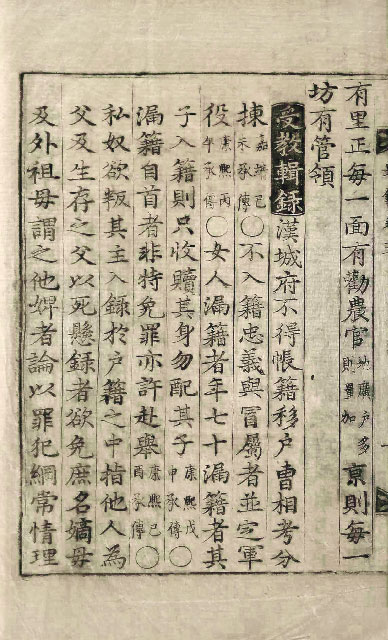 有里正每一面有勸農官地廣戶多則量加京則每一
坊有管領
受敎輯錄漢城府不得帳籍移戶曹相考分
揀嘉靖己未承傳〇不入籍忠義與冒屬者並定軍
役康熙丙午承傳〇女人漏籍者年七十漏籍者其
子入籍則只收贖其身勿配其子康熙戊申承傳〇
漏籍自首者非特免罪亦許赴擧康熙己酉承傳〇
私奴欲叛其主入錄於戶籍之中指他人爲
父及生存之父以死懸錄者欲免庶名嫡母
及外祖母謂之他婢者論以罪犯綱常情理